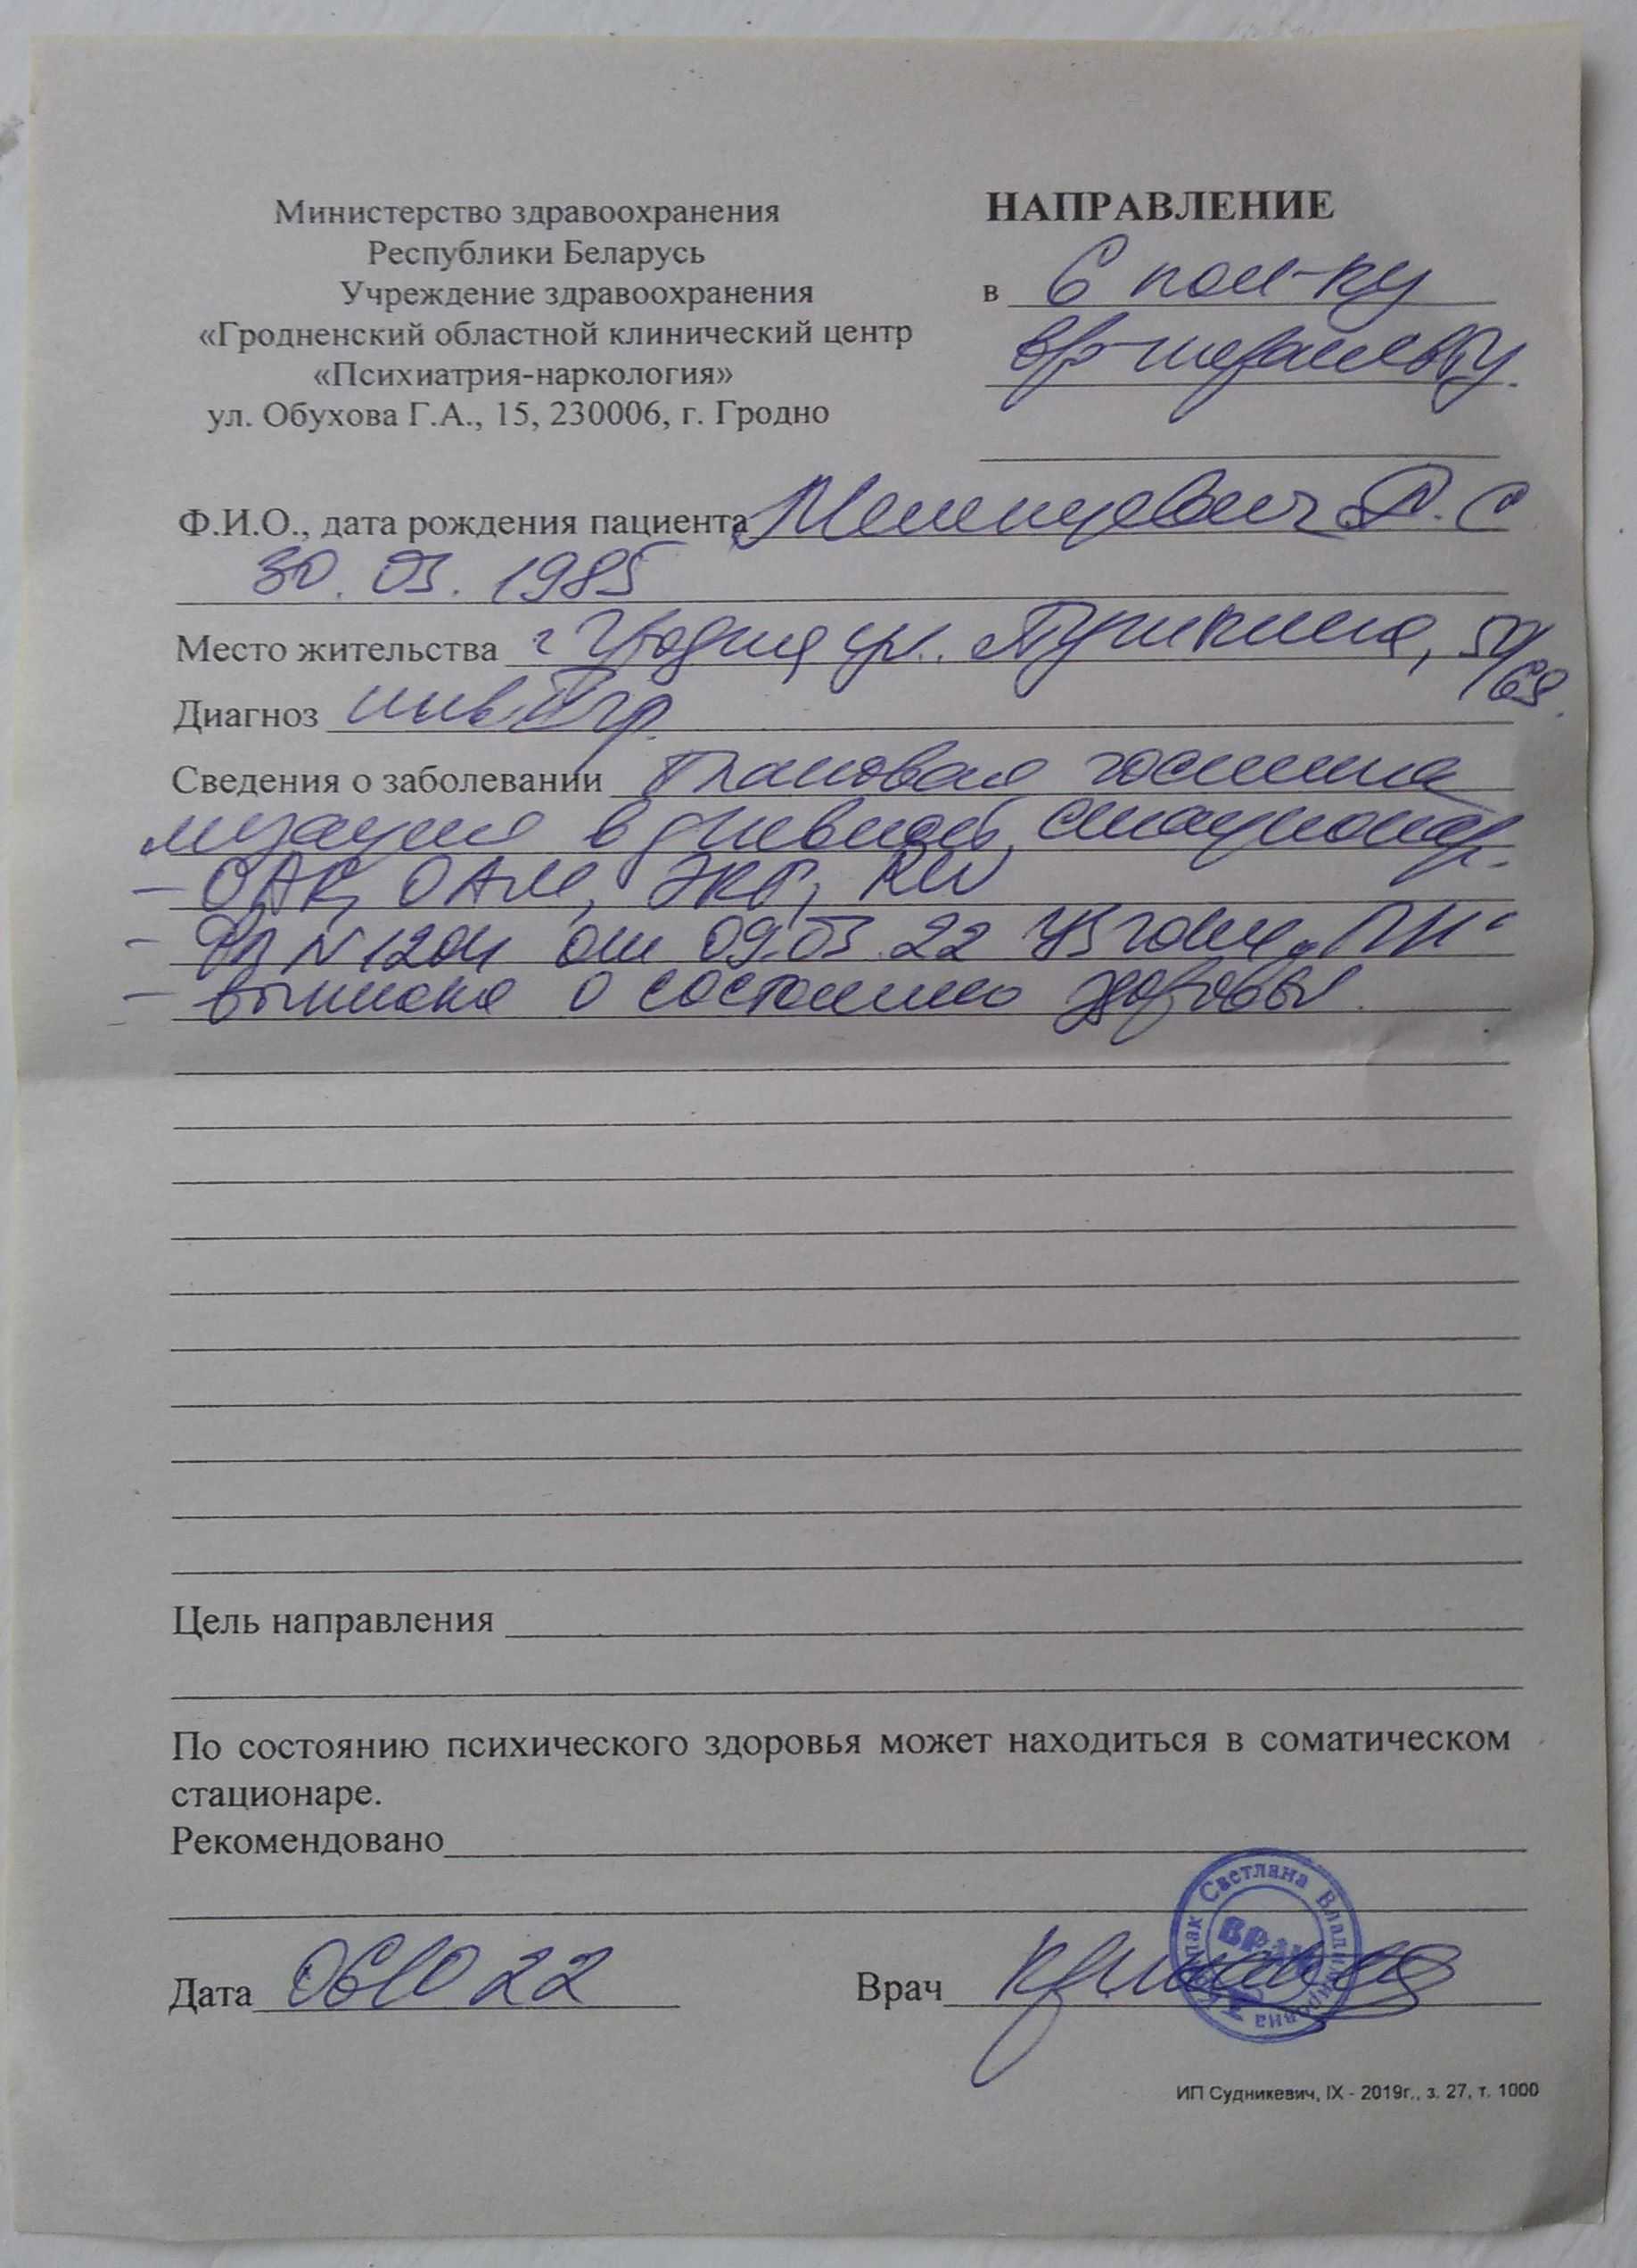 Министерство здравоохранения
Республики Беларусь
Учреждение здравоохранения
«Гродненский областной клинический центр
«Психиатрия-наркология»
ул. Обухова Г.А., 15, 230006, г. Гродно
НАПРАВЛЕНИЕ
в 6 пол-ку
вр-терапевту.
Ф.И.О., дата рождения пациента
30.03.1985
Место жительства г Гродно ул. Пушкина,
Диагноз инв II гр.
Сведения о заболевании Плановая госпита
лизация в дневной стационар.
- ОАК, ОАМ, ЭКГ, RW
- ФЛ N 1204 от 09.03.22 УЗ ГОКЦ „ПН"
- выписка о состоянию здоровья.
Цель направления
По состоянию психического здоровья может находиться в соматическом
стационаре.
Рекомендовано
Дата 06 10 22
Врач
Светлана Владимировна
ВРАЧ
ИП Судникевич, IX - 2019г., з. 27, т. 1000